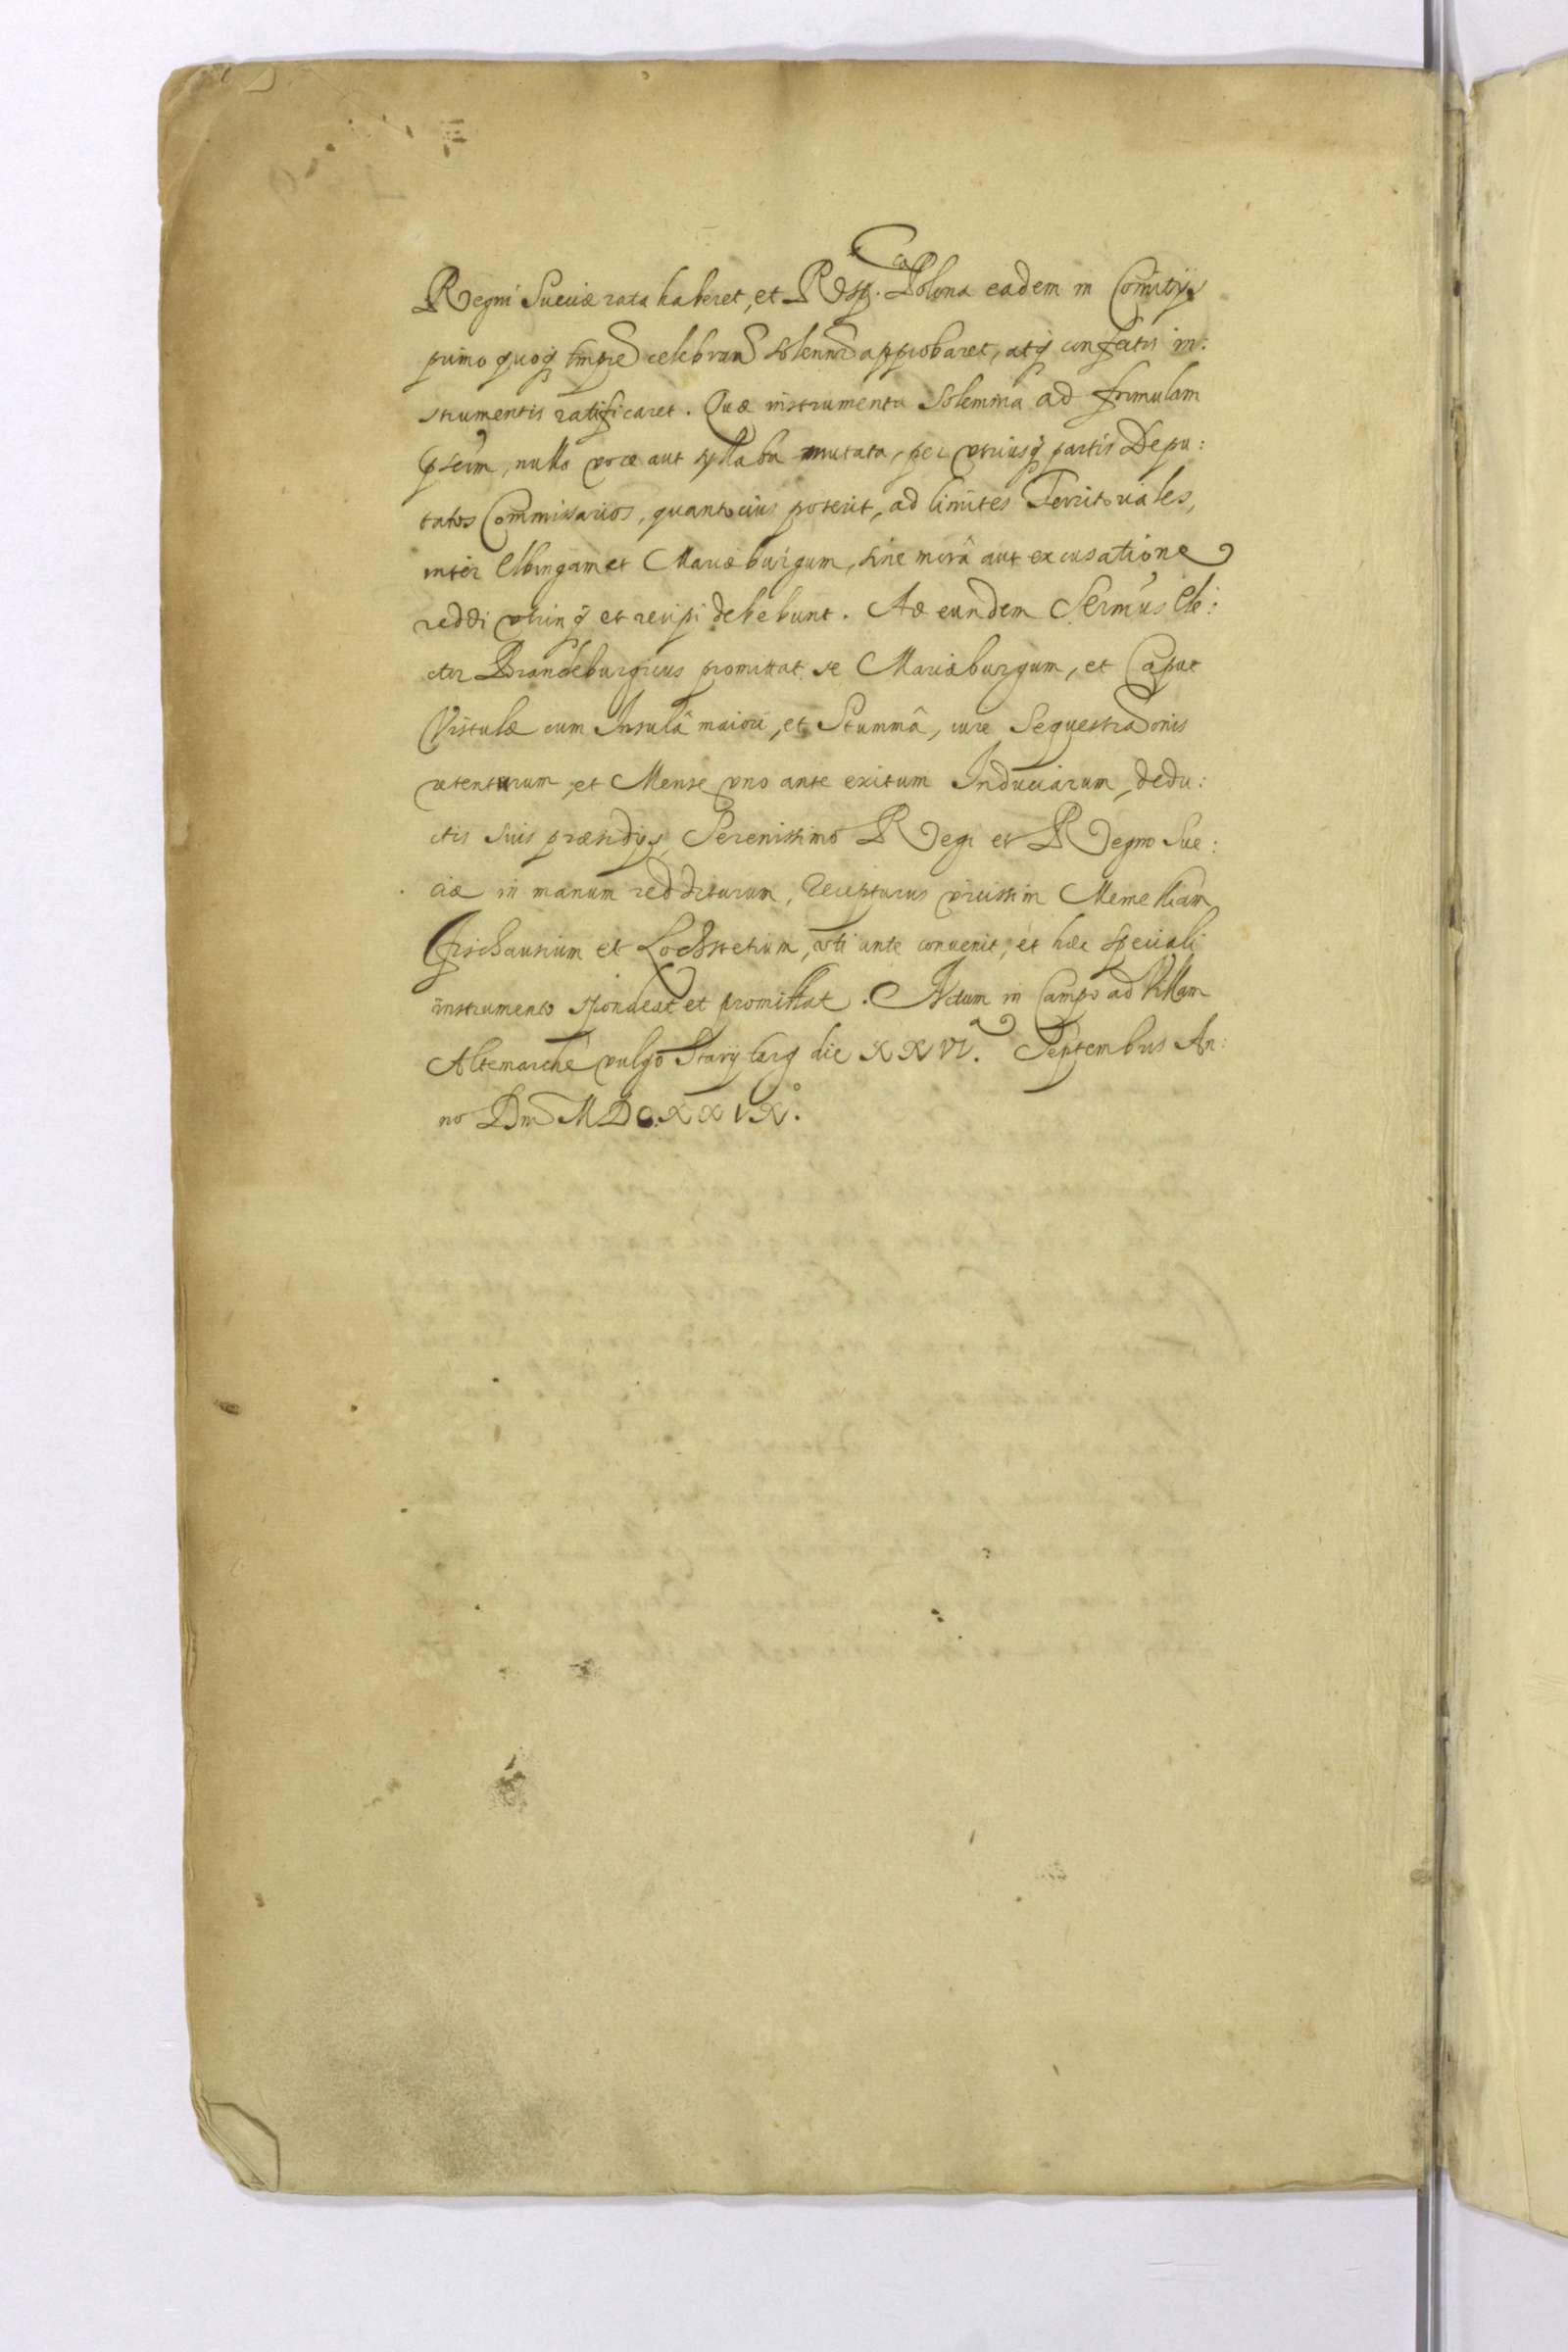 Regni Sueciæ rata haberet, et Resp.ca Polona eadem in Comitijs
primo quoq tmpre celebran solenni approbaret, atq confectis in:
strumentis ratificaret. Quæ instrumenta Solemnia ad formulam
pntem, nulla voce aut syllaba mutata, per vtriusq partis Depu:
tatos Commissarios, quantocius poterit, ad limites Territoriales,
inter Elbingam et Mariæburgum, sine morâ aut excusatione
reddi vtrinq et recipi debebunt. Ad eundem Sermus Ele:
ctor Brandeburgicus promittat se Mariæburgum, et Caput
Vistulæ cum Insulâ maiori, et Stummâ, iure Sequestraonis
retenturum, et Mense vno ante exitum Induciarum, dedu:
ctis suis præsidijs, Serenissimo Regi et Regno Sue:
ciæ in manum redditurum, Recepturus vicissim Memeliam
Fischausium et Lochstetium, vti ante conuenit, et hæc speciali
instrumento spondeat et promittat. Actum in Campo ad Villam
Altemarche vulgo Staryj targ die XXVI.a Septembris An:
no Dni MDC.XXVIX.o